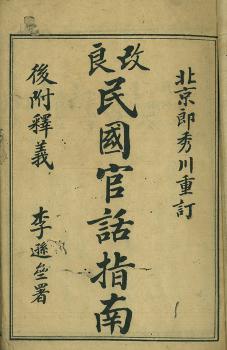 北京郎秀川重訂
改良
民國官話指南
後附釋義
李遜垒署